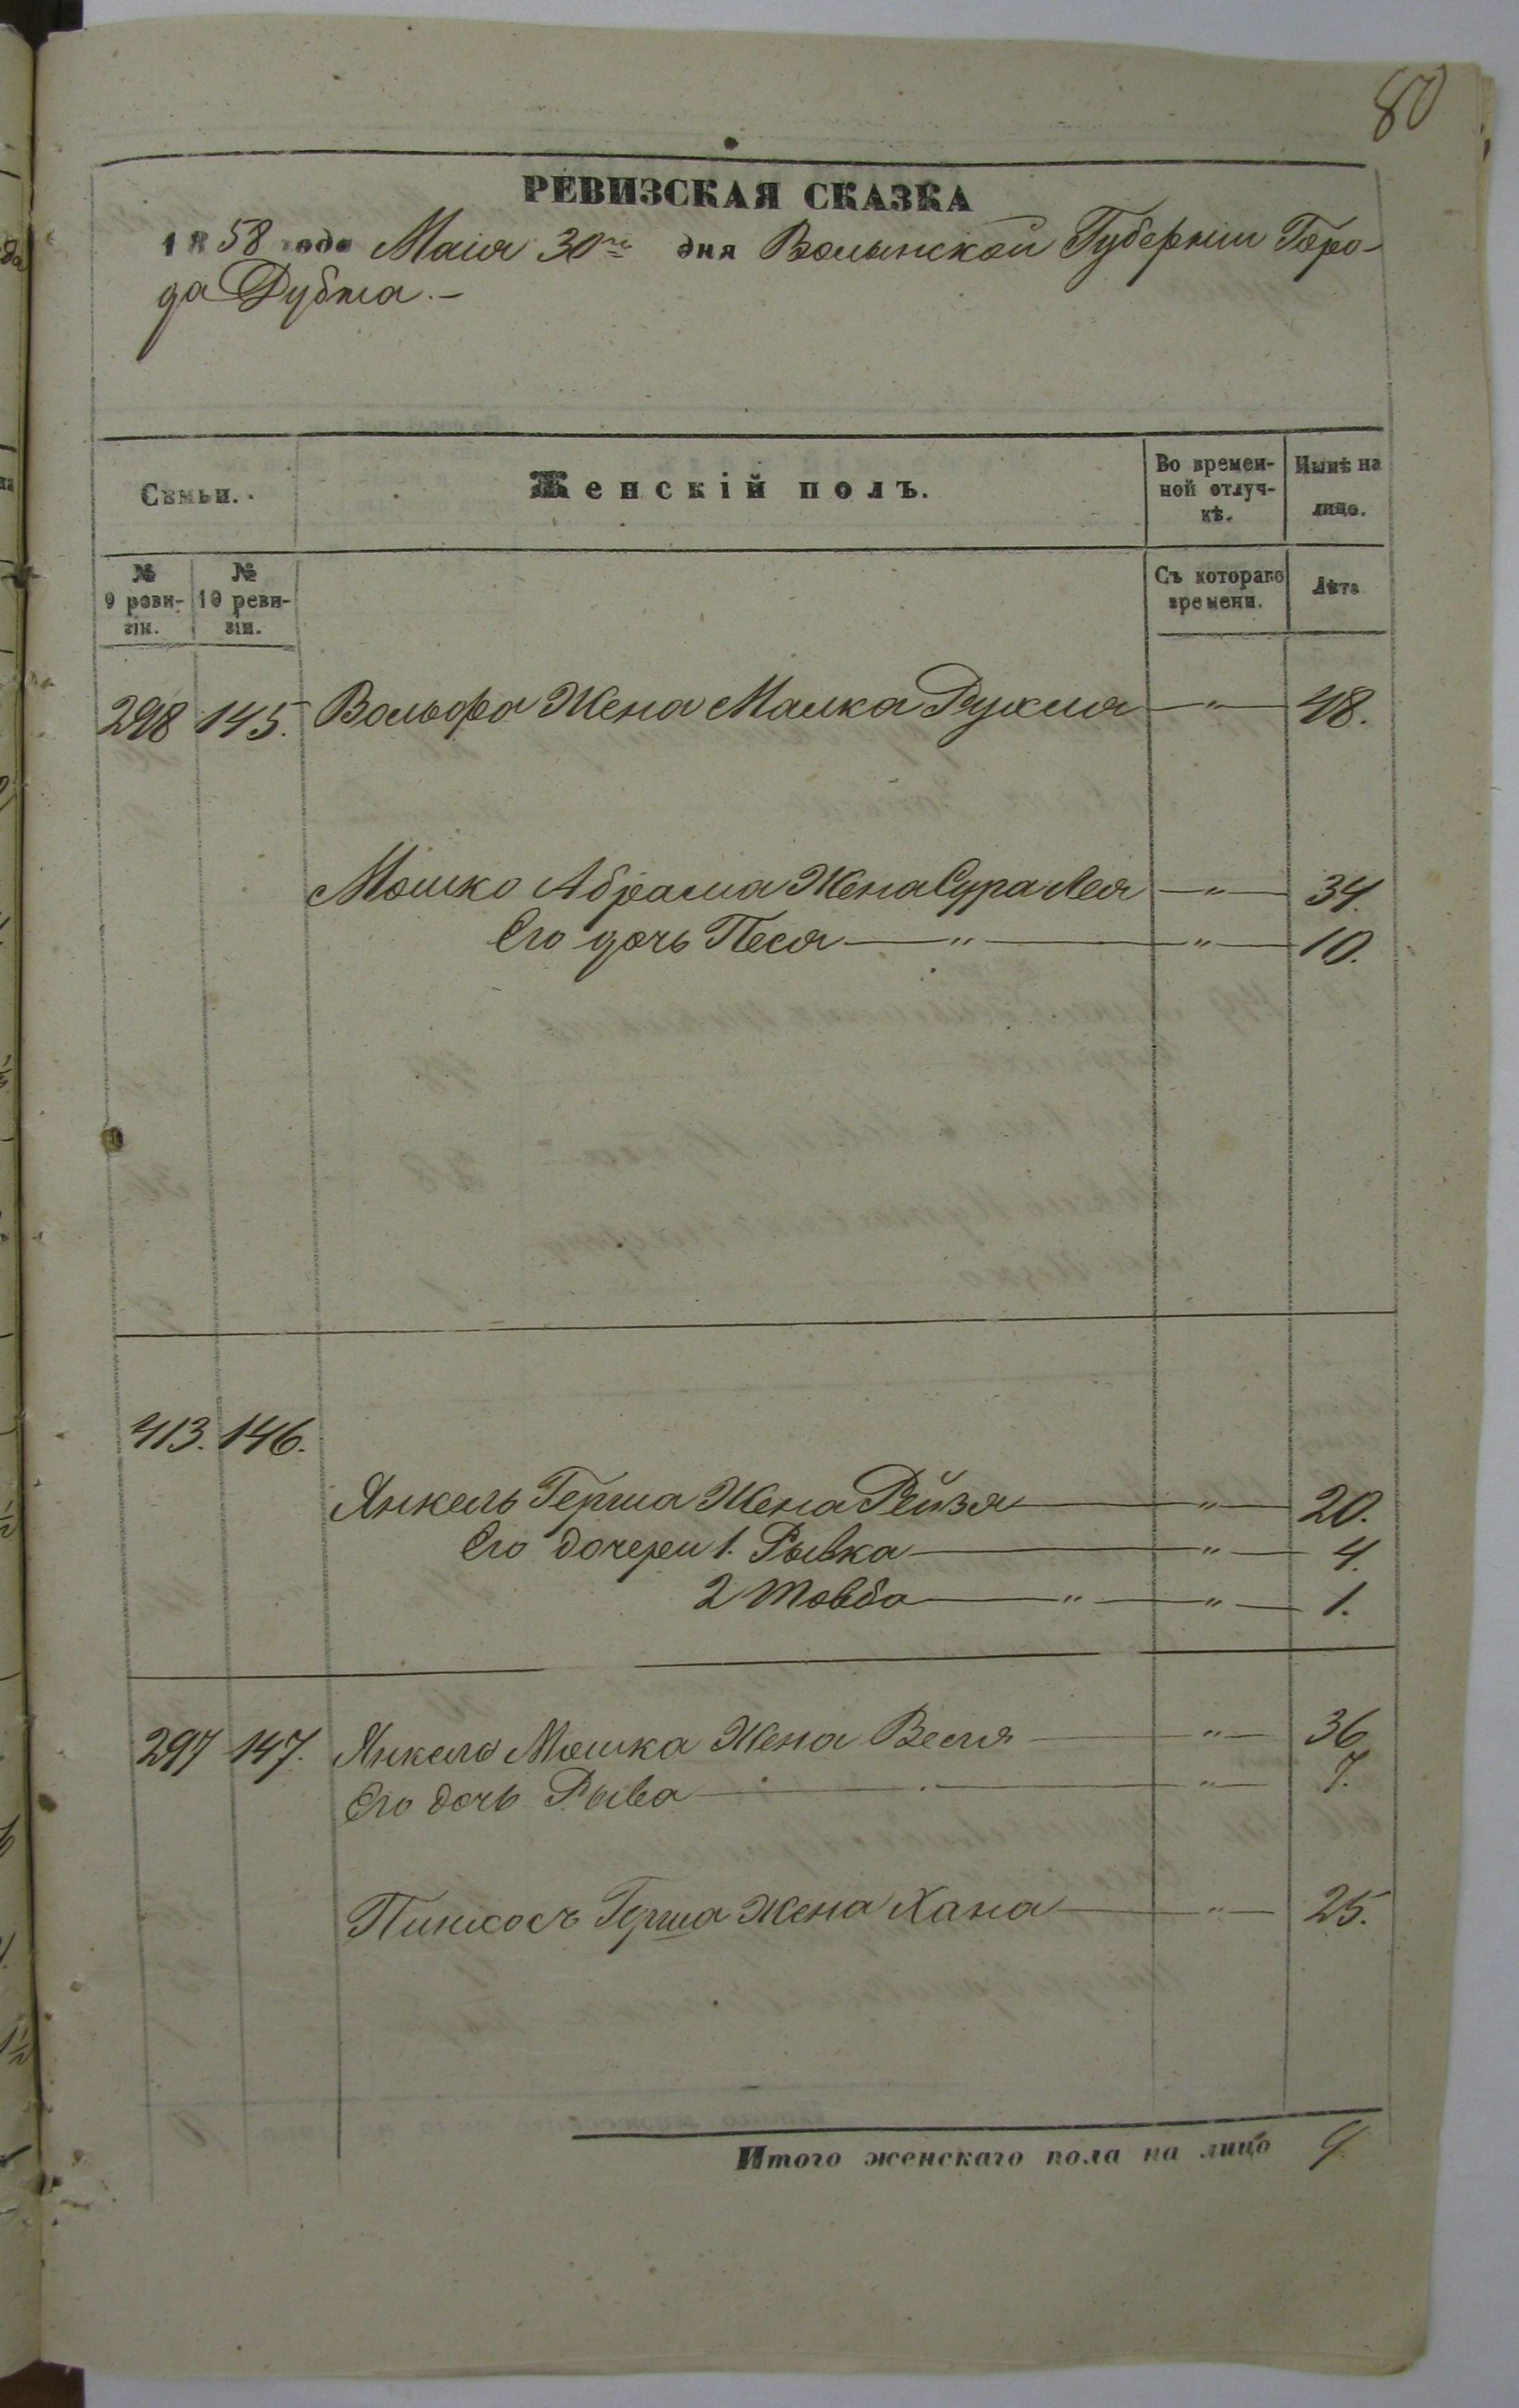 80
РЕВИЗСКАЯ СКАЗКА
1858 года Маія 30го дня Волынской Губерніи Горо-
да Дубна.-
Семьи.
Женскій полъ.
Во времен-
ной отлуч-
кѣ.
Нынѣ на
лицо.
№
9 реви-
зіи.
№
10 реви-
зіи.
Съ котораго
времени.
Лѣта
298 145. Вольфа Жена Малка Рухля — " — 48.
Мошко Абрама Жена Сура Лея — " — 34.
Его дочь Песя — " — " — 10.
413. 146.
Янкель Герша Жена Рейзя — " — 20.
Его дочери 1. Рывка — " — 4.
2 Товба — " — " — 1.
297 147. Янкель Мошка Жена Вестя — " — 36
Его дочь Рыва — " — 7.
Пинхосъ Герша Жена Хана — " — 25.
Итого женскаго пола на лицо 9